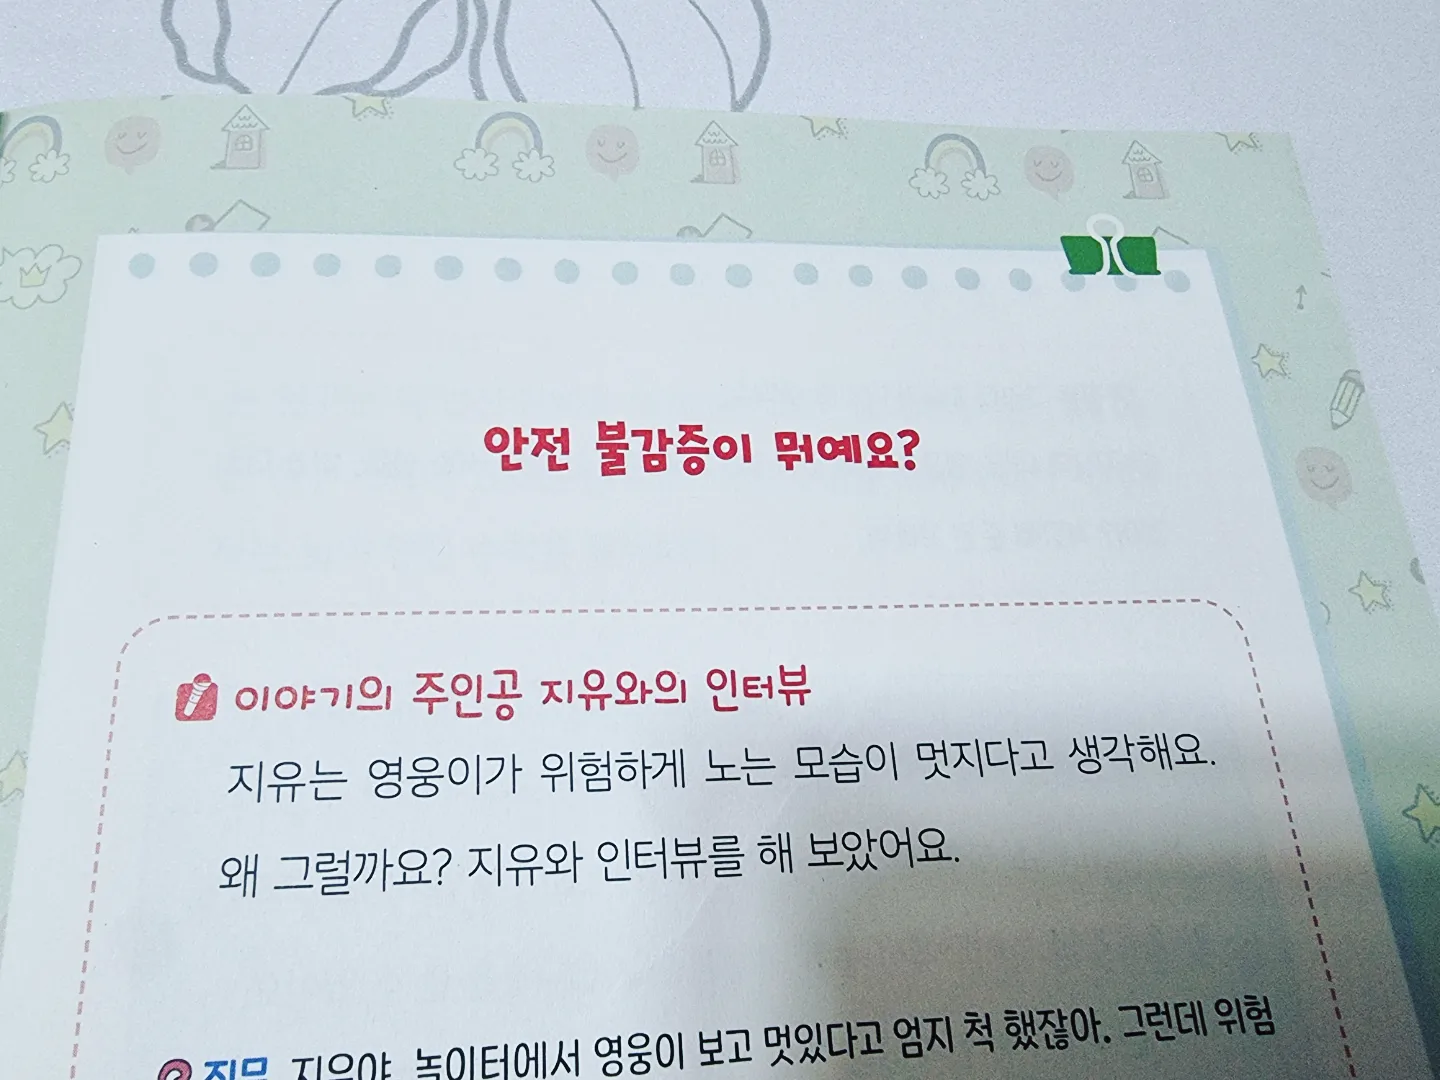 안전 불감증이 뭐예요?
이야기의 주인공 지유와의 인터뷰
지유는 영웅이가 위험하게 노는 모습이 멋지다고 생각해요.
왜 그럴까요? 지유와 인터뷰를 해 보았어요.
질문 지유야, 놀이터에서 영웅이 보고 멋있다고 엄지 척 했잖아. 그런데 위험